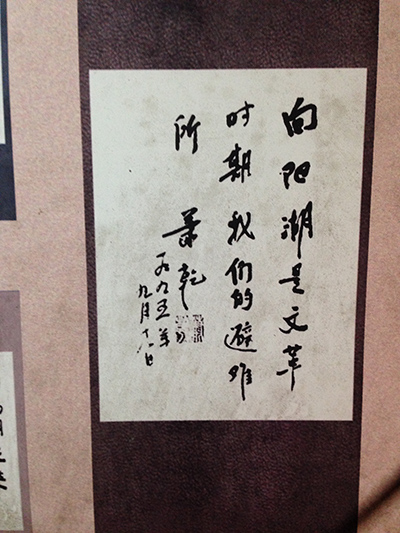 向阳湖是文革
时期我们的避难
所
萧乾
一九九五年
九月十八日